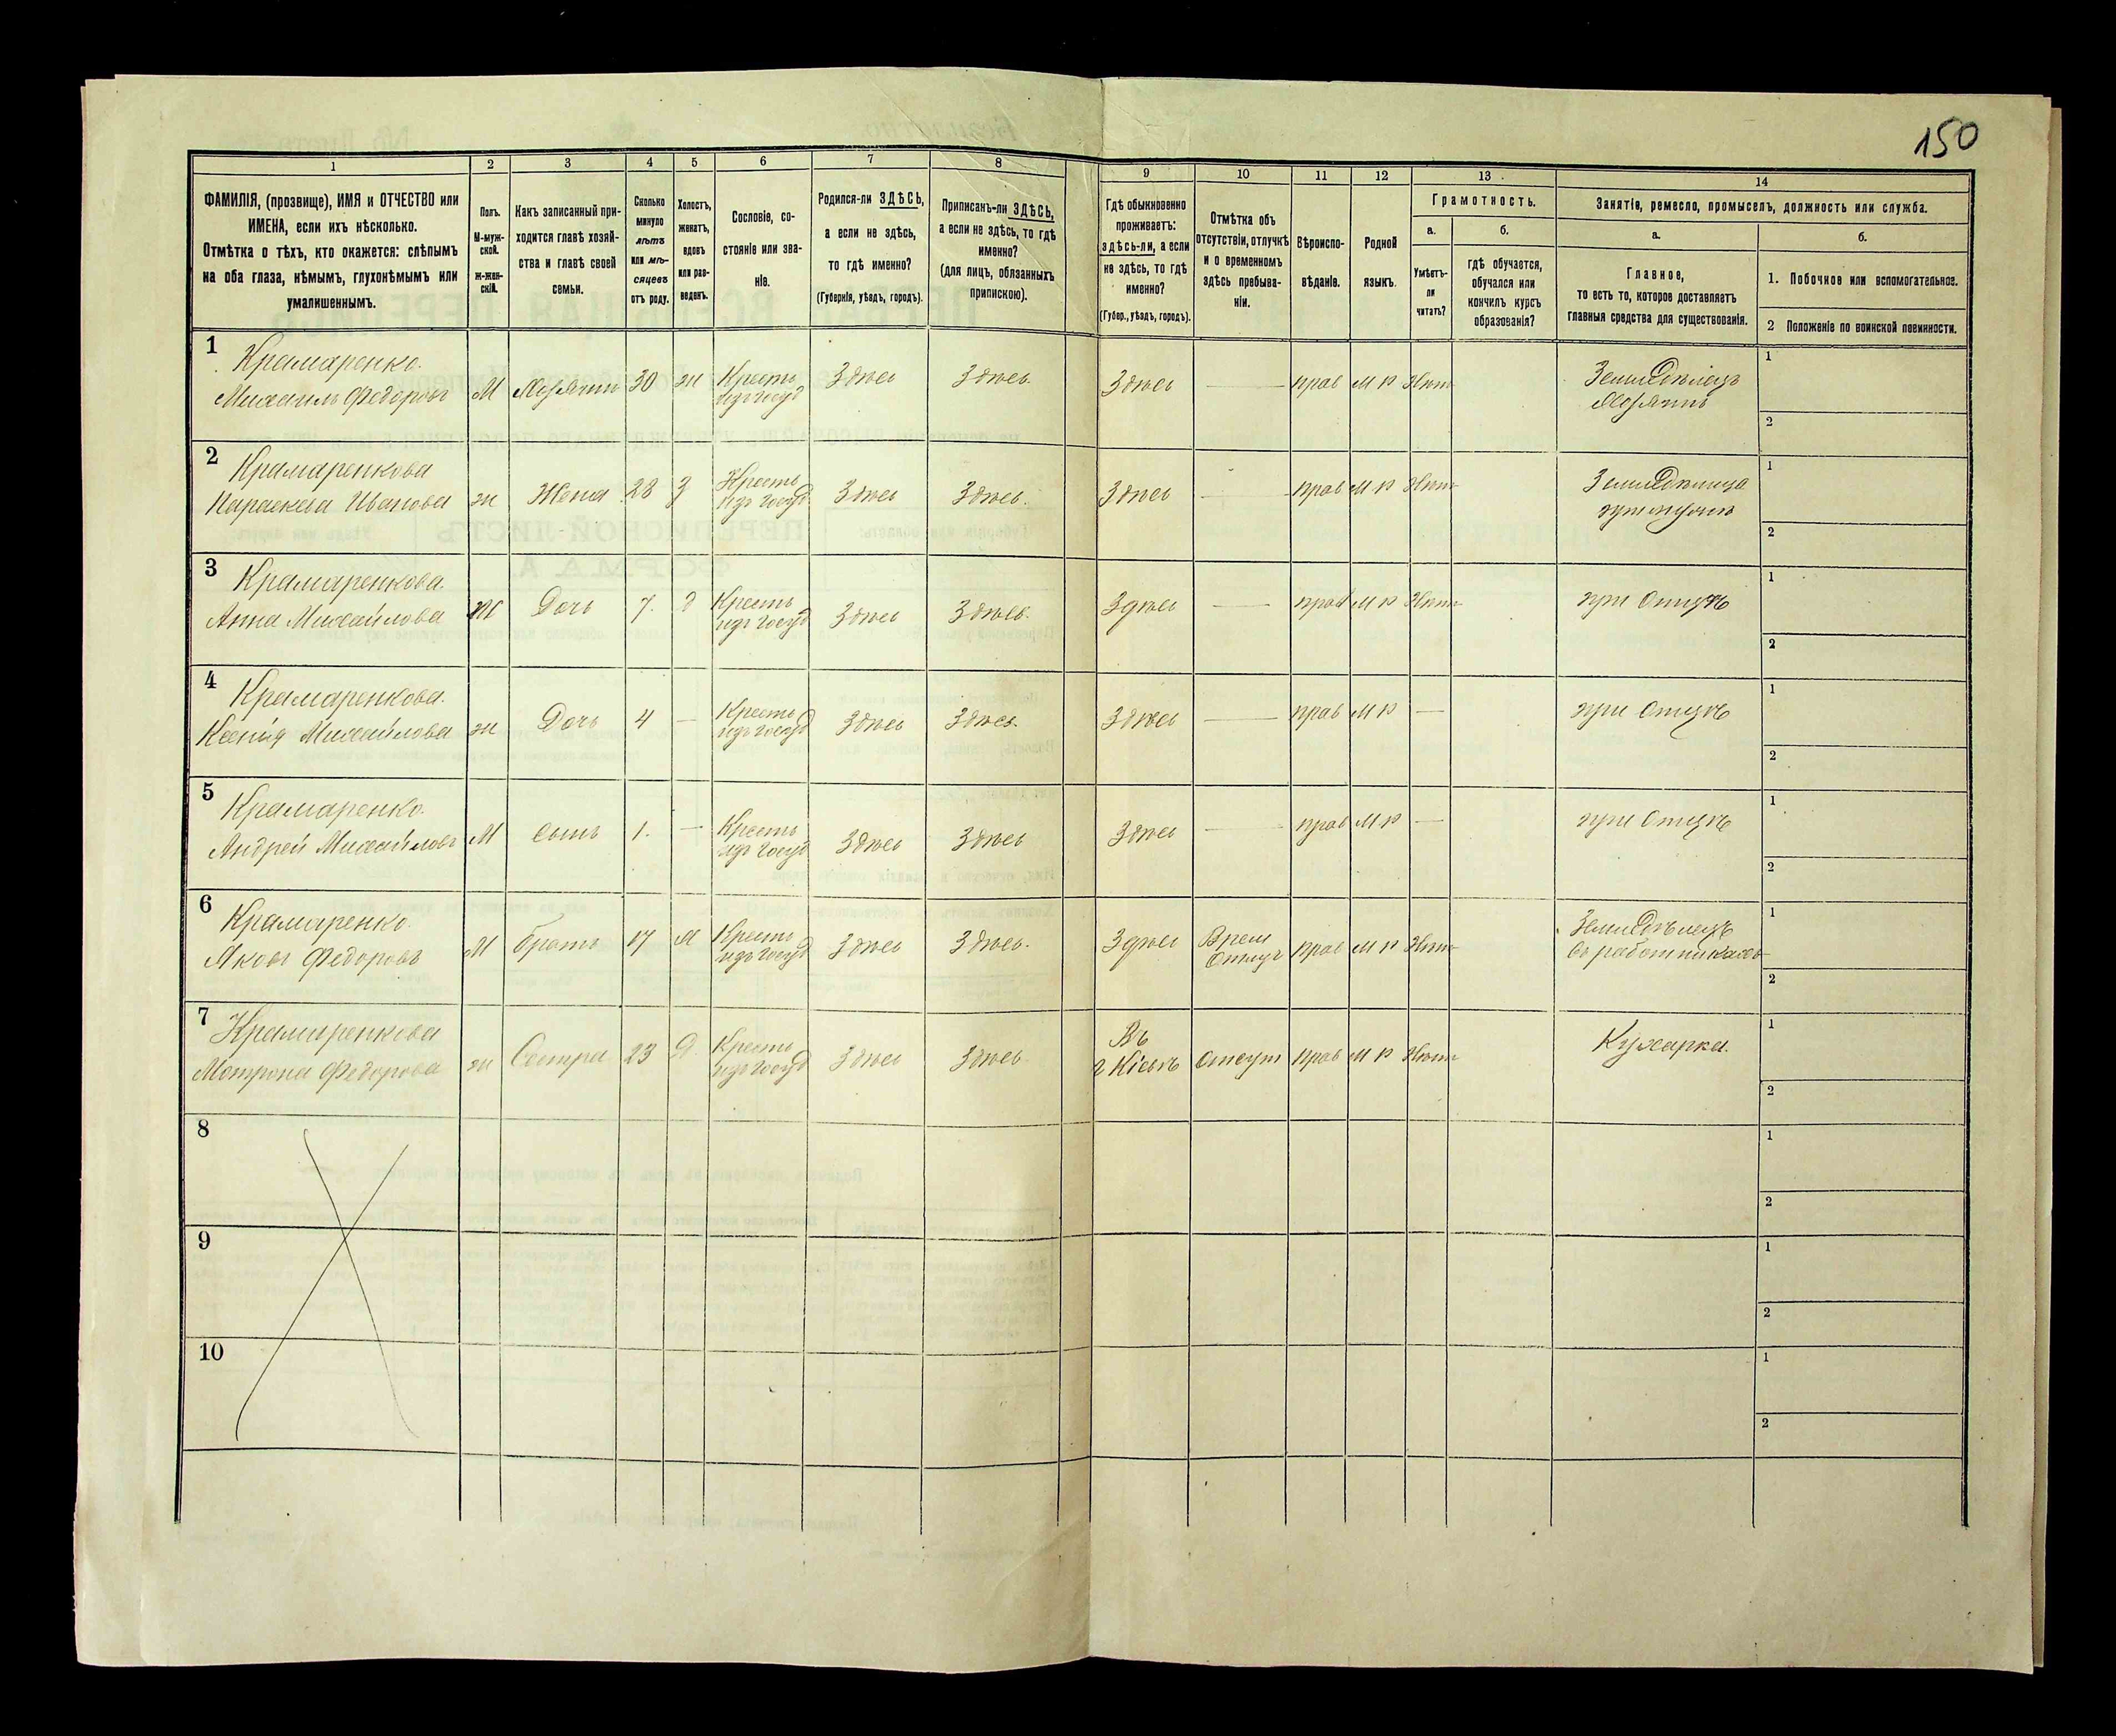 150
1
2
3
4
5
6
7
8
9
10
11
12
13
14
ФАМИЛІЯ, (прозвище), ИМЯ и ОТЧЕСТВО или
ИМЕНА, если ихъ нѣсколько.
Отмѣтка о тѣхъ, кто окажется: слѣпымъ
на оба глаза, нѣмымъ, глухонѣмымъ или
умалишеннымъ.
Полъ.
М-муж-
ской.
Ж-жен-
скій.
Какъ записанный при-
ходится главѣ хозяй-
ства и главѣ своей
семьи.
Сколько
минуло
лѣтъ
или мѣ-
сяцевъ
отъ роду.
Холостъ,
женатъ,
вдовъ
или раз-
веденъ.
Сословіе, со-
стояніе или зва-
ніе.
Родился-ли ЗДѢСЬ,
а если не здѣсь,
то гдѣ именно?
(Губернія, уѣздъ, городъ).
Приписанъ-ли ЗДѢСЬ,
а если не здѣсь, то гдѣ
именно?
(для лицъ, обязанныхъ
припискою).
Гдѣ обыкновенно
проживаетъ:
здѣсь-ли, а если
не здѣсь, то гдѣ
именно?
(Губер., уѣздъ, городъ).
Отмѣтка объ
отсутствіи, отлучкѣ
и о временномъ
здѣсь пребыва-
ніи.
Вѣроиспо-
вѣданіе.
Родной
языкъ.
Грамотность.
а.
Умѣетъ-
ли
читать?
б.
гдѣ обучается,
обучался или
кончилъ курсъ
образованія?
Занятіе, ремесло, промыселъ, должность или служба.
а.
Главное,
то есть то, которое доставляетъ
главныя средства для существованія.
б.
1. Побочное или вспомогательное.
2 Положеніе по воинской повинности.
1
Крамаренко.
Михаилъ Федоровъ
М
Хозяинъ
30
ж
Крестъ
изъ госуд
Здѣсь
Здѣсь.
Здѣсь
—
прав
м р
Нѣт
Земледѣлецъ
Хозяинъ
1
2
2
Крамаренкова
Параскева Иванова
ж
Жена
28
з
Крестъ
изъ госуд
Здѣсь
Здѣсь.
Здѣсь
—
прав
м р
Нѣт
Земледѣлица
при мужѣ
1
2
3
Крамаренкова.
Анна Михайлова
ж
Дочь
7.
д
Крестъ
изъ госуд
Здѣсь
Здѣсь.
Здѣсь
—
прав
м р
Нѣт
при Отцѣ
1
2
4
Крамаренкова.
Ксенія Михайлова
ж
Дочь
4
—
Крестъ
изъ госуд
Здѣсь
Здѣсь.
Здѣсь
—
прав
м р
—
при Отцѣ
1
2
5
Крамаренко.
Андрей Михайловъ
М
сынъ
1.
—
Крестъ
изъ госуд
Здѣсь
Здѣсь
Здѣсь
—
прав
м р
—
при Отцѣ
1
2
6
Крамаренко.
Яковъ Федоровъ
М
братъ
17
Крестъ
изъ госуд
Здѣсь
Здѣсь.
Здѣсь
Врем
Отлуч
прав
м р
Нѣт
Земледѣлецъ
въ работникахъ
1
2
7
Крамаренкова
Мотрона Федорова
ж
Сестра
23
Д
Крестъ
изъ госуд
Здѣсь
Здѣсь
Въ
г Кіевѣ
Отсут
прав
м р
Нѣт
Кухарка.
1
2
8
1
2
9
1
2
10
1
2